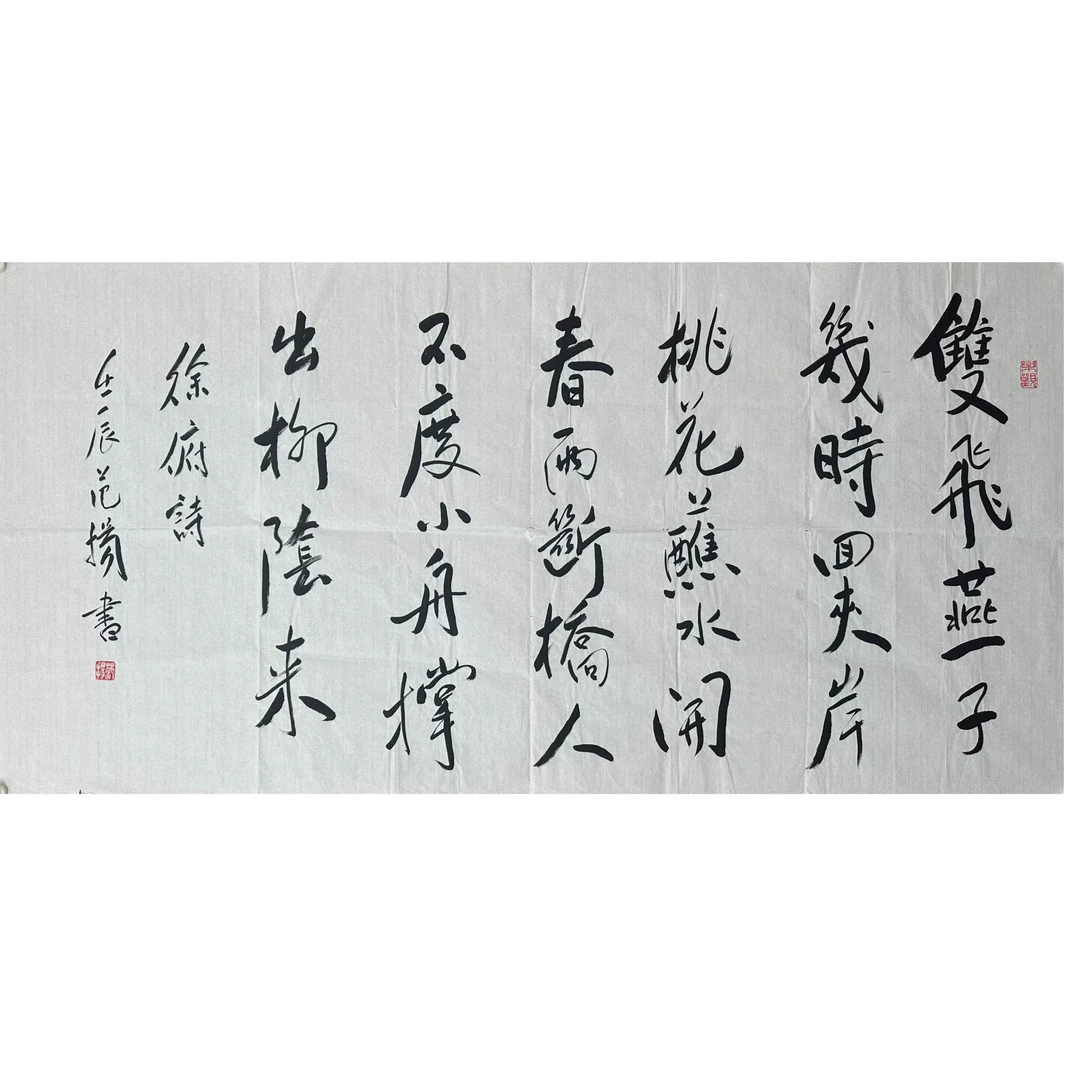 雙飛燕子
幾時回夾岸
桃花蘸水開
春雨斷橋人
不度小舟撑
出柳陰来
徐俯詩
壬辰范揚書